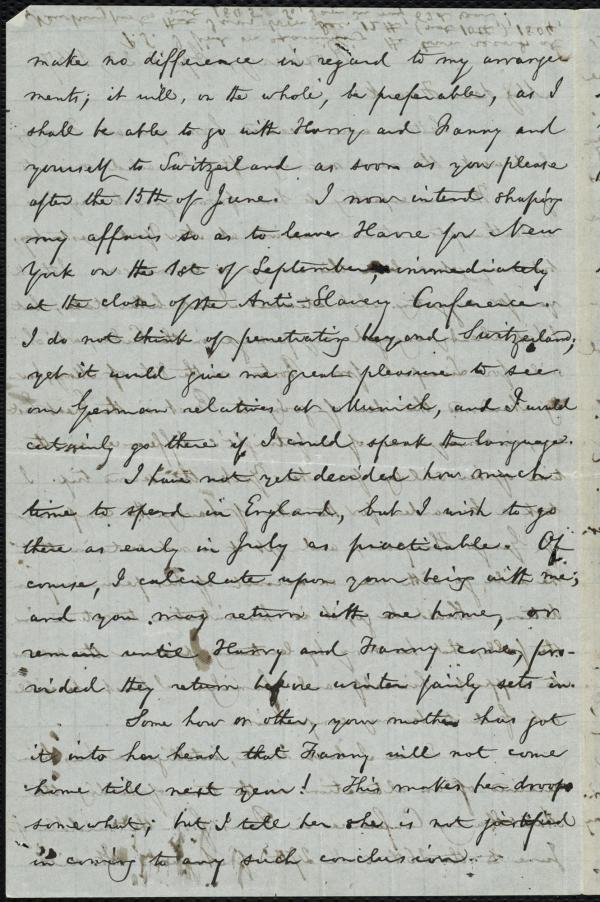 make no difference in regard to my arrange-
ments; it will, on the whole, be preferable, as I
shall be able to go with Harry and Fanny and
yourself to Switzerland as soon as you please
after the 15th of June. I now intend shaping
my affairs so as to leave Havre for New
York on the 1st of September, immediately
at the close of the Anti-Slavery Conference.
I do not think of penetrating beyond Switzerland;
yet it would give me great pleasure to see
our German relatives at Munich, and I would
certainly go there if I could speak the language.
I have not yet decided how much
time to spend in England, but I wish to go
there as early in July as practicable. Of
course, I calculate upon your being with me;
and you may return with me home, or
remain until Harry and Fanny come, pro-
vided they return before winter fairly sets in.
Some how or other, your mother has got
it into her head that Fanny will not come
home till next year! This makes her droop
somewhat; but I tell her she is not justified
in coming to any such conclusion.